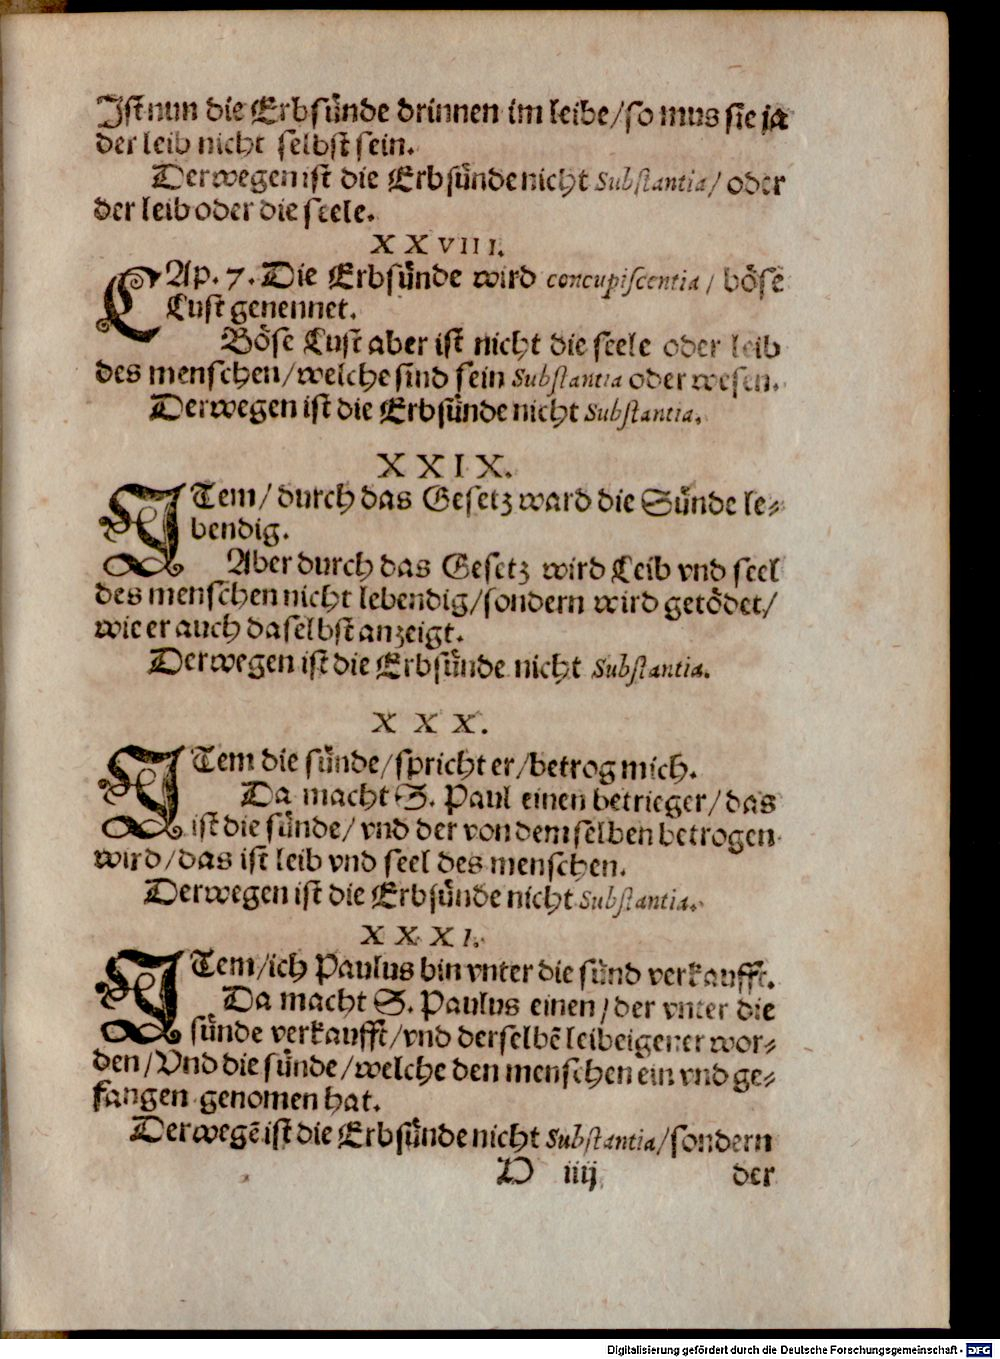 Ist nun die Erbsünde drinnen im leibe/ so mus sie ja
der leib nicht selbst sein.
Derwegen ist die Erbsünde nicht Substantia/ oder
der leib oder die seele.
XXVIII.
CAp. 7. Die Erbsünde wird concupiscentia/ böse
Lust genennet.
Böse Lust aber ist nicht die seele oder leib
des menschen/ welche sind sein Substantia oder wesen.
Derwegen ist die Erbsünde nicht Substantia.
XXIX.
ITem/ durch das Gesetz ward die Sünde le-
bendig.
Aber durch das Gesetz wird Leib vnd seel
des menschen nicht lebendig/ sondern wird getödet/
wie er auch daselbst anzeigt.
Derwegen ist die Erbsünde nicht Substantia.
XXX.
ITem die sünde/ spricht er/ betrog mich.
Da macht S. Paul einen betrieger/ das
ist die sünde/ vnd der von demselben betrogen
wird/ das ist leib vnd seel des menschen.
Derwegen ist die Erbsünde nicht Substantia.
XXXI.
ITem/ ich Paulus bin vnter die sünd verkaufft.
Da macht S. Paulus einen/ der vnter die
sünde verkaufft/ vnd derselbē leibeigener wor-
den/ Vnd die sünde/ welche den menschen ein vnd ge-
fangen genomen hat.
Derwegē ist die Erbsünde nicht Substantia/ sondern
D iiij der
Digitalisierung gefördert durch die Deutsche Forschungsgemeinschaft - DFG